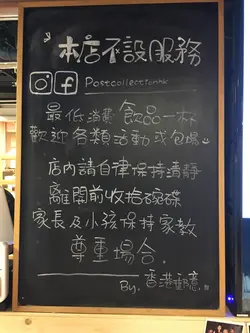 本店不設服務
Postcollectionhk
最低消費飲品一杯
歡迎各類活動或包場
店內請自律保持清靜
離開前收拾碗碟
家長及小孩保持家教
尊重場合.
By. 香港